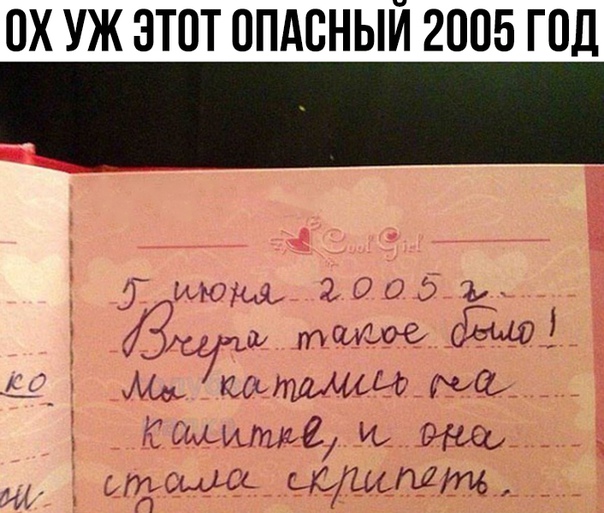 ОХ УЖ ЭТОТ ОПАСНЫЙ 2005 ГОД
Cool Girl
5 июня 2005 г.
Вчера такое было!
Мы катались на
ко
калитке, и она
стала скрипеть.